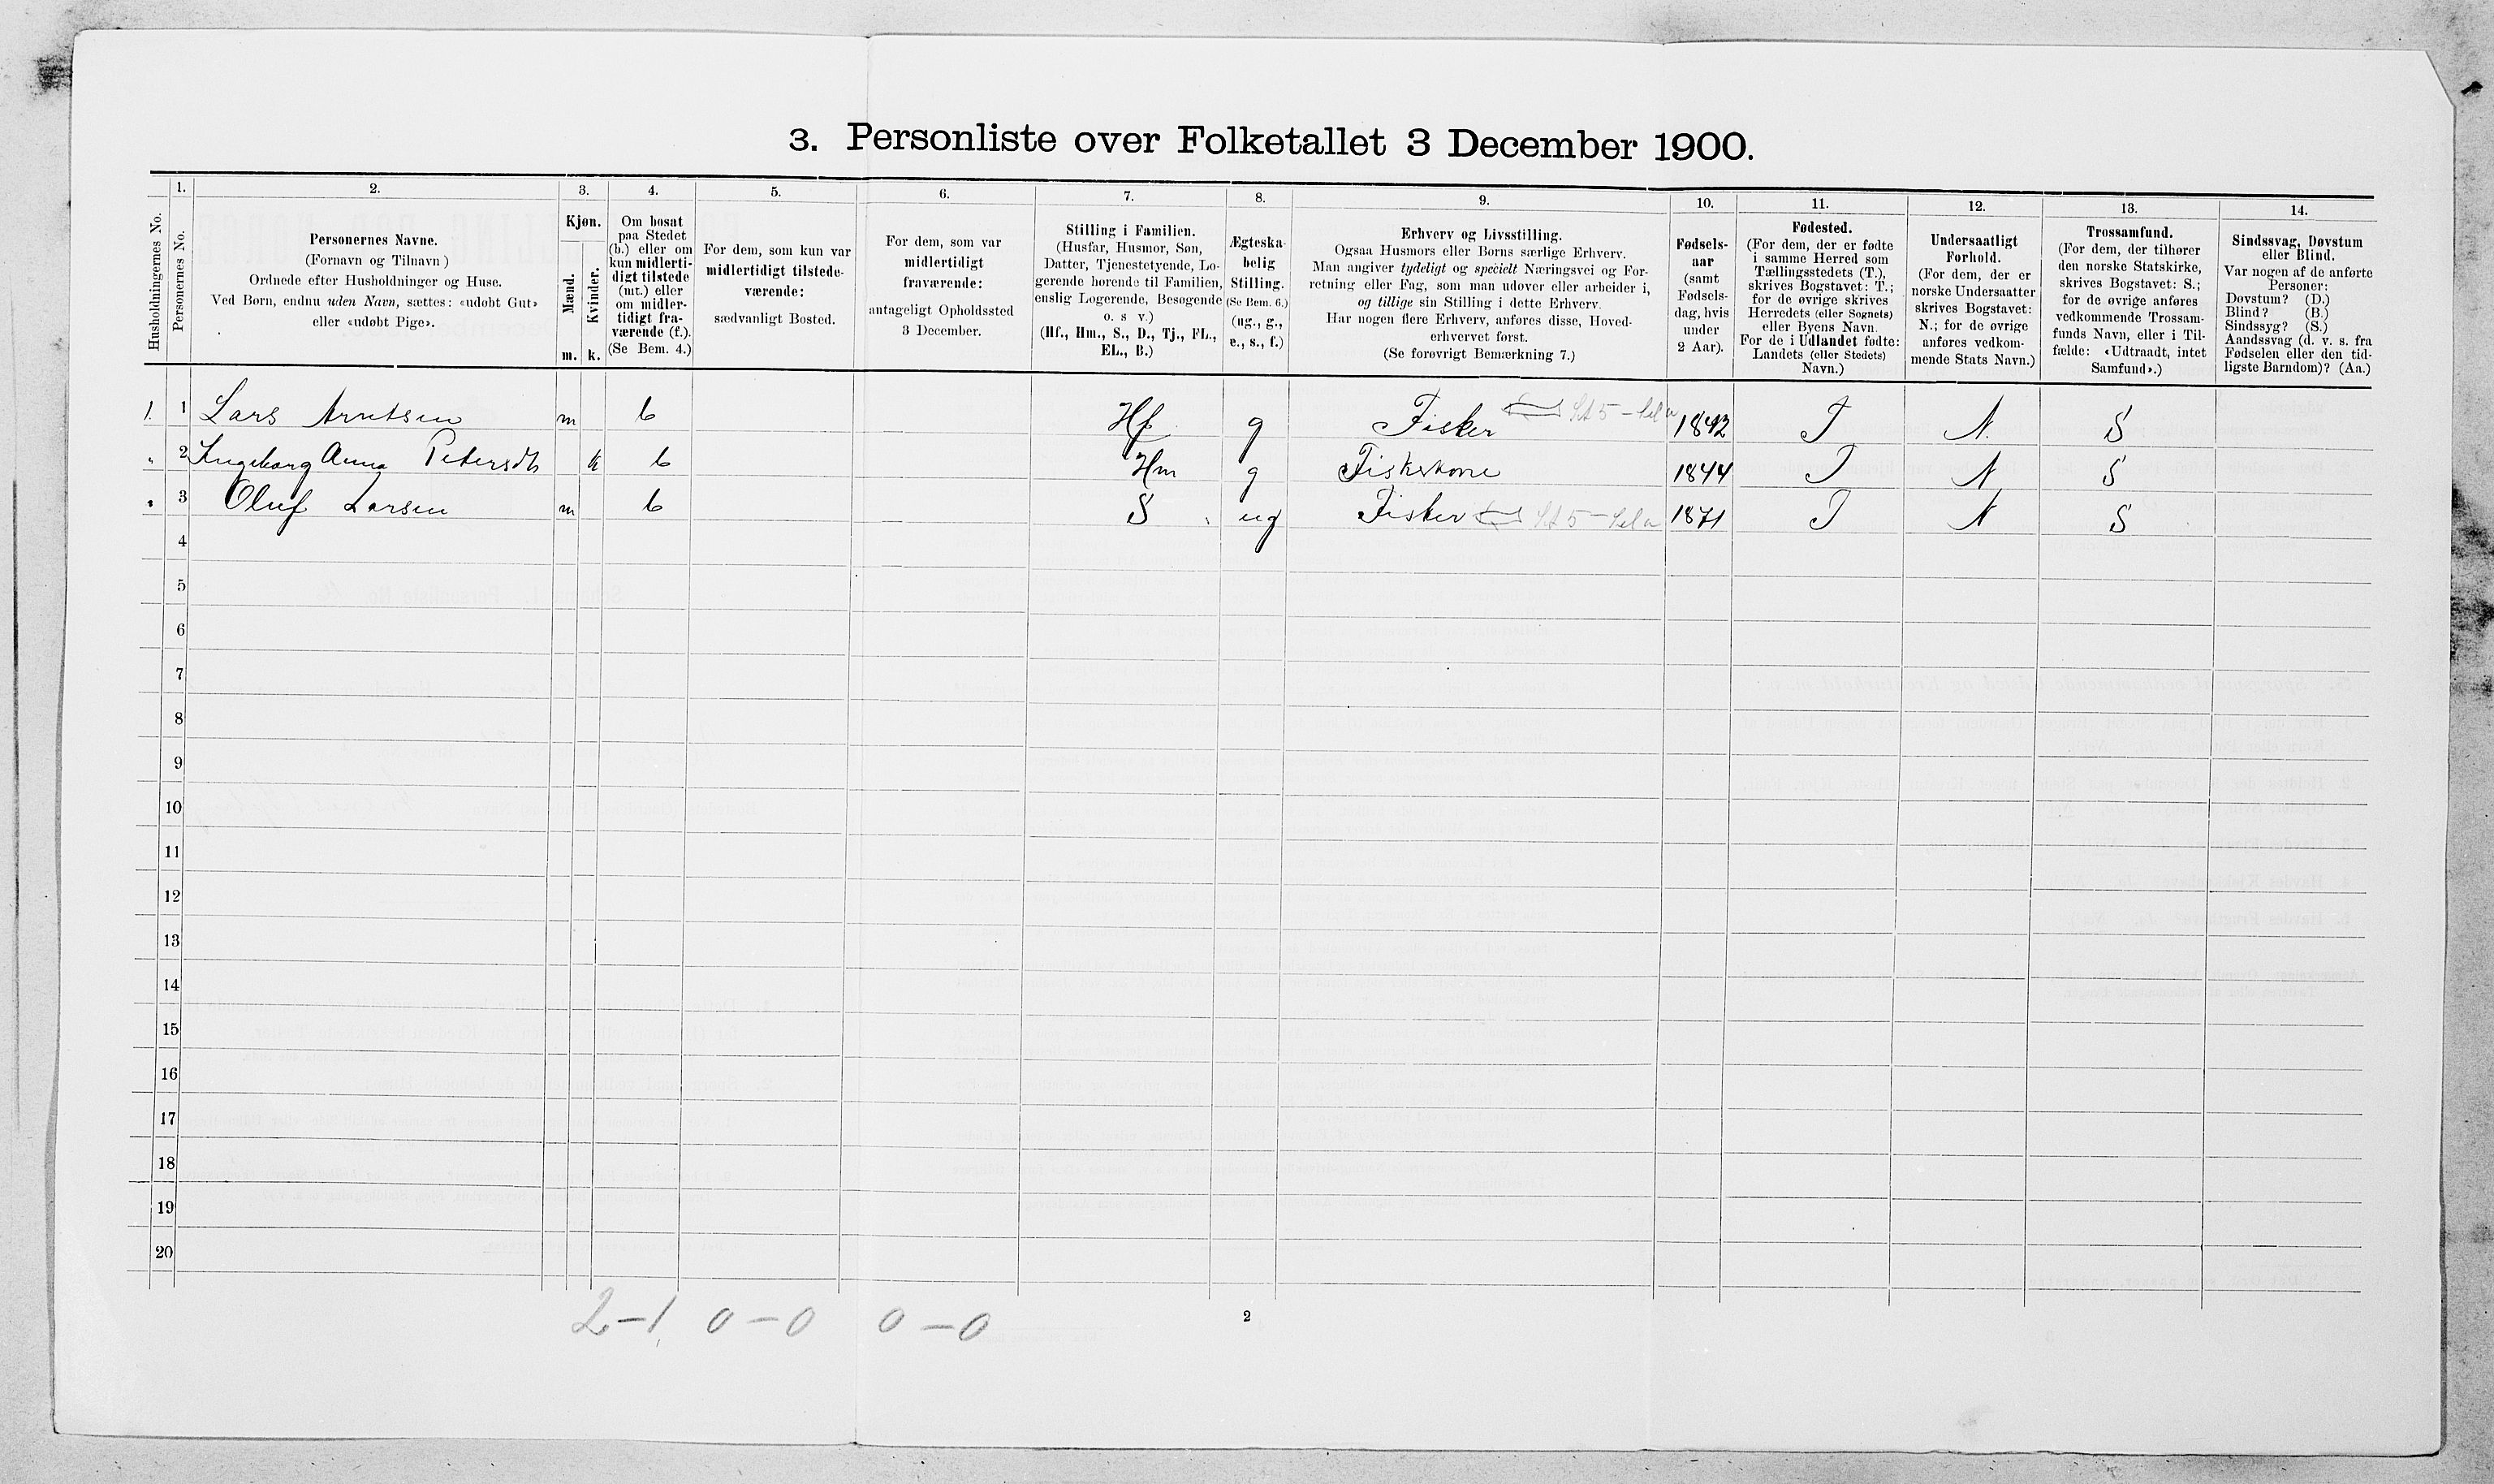 3. Personliste over Folketallet 3 December 1900.
Husholdningernes No.
1.
Personernes No.
2.
Personernes Navne.
(Fornavn og Tilnavn)
Ordnede efter Husholdninger og Huse.
Ved Børn, endnu uden Navn, sættes: «udøbt Gut»
eller «udøbt Pige».
3.
Kjøn.
Mænd.
Kvinder.
m. k.
4.
Om bosat
paa Stedet
(b.) eller om
kun midlerti-
digt tilstede
(mt.) eller
om midler-
tidigt fra-
værende (f.).
(Se Bem. 4.)
5.
For dem, som kun var
midlertidigt tilstede-
værende:
sædvanligt Bosted.
6.
For dem, som var
midlertidigt
fraværende:
antageligt Opholdssted
3 December.
7.
Stilling i Familien.
(Husfar, Husmor, Søn,
Datter, Tjenestetyende, Lo-
gerende hørende til Familien,
enslig Logerende, Besøgende
o. s v.)
(Hf., Hm., S., D., Tj., FL.,
EL., B.)
8.
Ægteska-
belig
Stilling.
(Se Bem. 6.)
(ug., g.,
e., s., f.)
9.
Erhverv og Livsstilling.
Ogsaa Husmors eller Børns særlige Erhverv.
Man angiver tydeligt og specielt Næringsvei og For-
retning eller Fag, som man udøver eller arbeider i,
og tillige sin Stilling i dette Erhverv.
Har nogen flere Erhverv, anføres disse, Hoved-
erhvervet først.
(Se forøvrigt Bemærkning 7.)
10.
Fødsels-
aar
(samt
Fødsels-
dag, hvis
under
2 Aar).
11.
Fødested.
(For dem, der er fødte
i samme Herred som
Tællingsstedets (T.),
skrives Bogstavet: T.;
for de øvrige skrives
Herredets (eller Sognets)
eller Byens Navn.
For de i Udlandet fødte:
Landets (eller Stedets)
Navn.)
12.
Undersaatligt
Forhold.
(For dem, der er
norske Undersaatter
skrives Bogstavet:
N.; for de øvrige
anføres vedkom-
mende Stats Navn.)
13.
Trossamfund.
(For dem, der tilhører
den norske Statskirke,
skrives Bogstavet: S.;
for de øvrige anføres
vedkommende Trossam-
funds Navn, eller i Til-
fælde: «Udtraadt, intet
Samfund».)
14.
Sindssvag, Døvstum
eller Blind.
Var nogen af de anførte
Personer:
Døvstum? (D.)
Blind? (B.)
Sindssyg? (S.)
Aandssvag (d. v. s. fra
Fødselen eller den tid-
ligste Barndom)? (Aa.)
1. 1 Lars Arntsen m b Hf. g Fisker 1842 T N. S
" 2 Ingeborg Anna Petersdt k b Hm g Fiskerkone 1844 T N S
" 3 Oluf Larsen m b S ug Fisker 1871 T N S
4
5
6
7
8
9
10
11
12
13
14
15
16
17
18
19
20
2-1 0-0 0-0
2